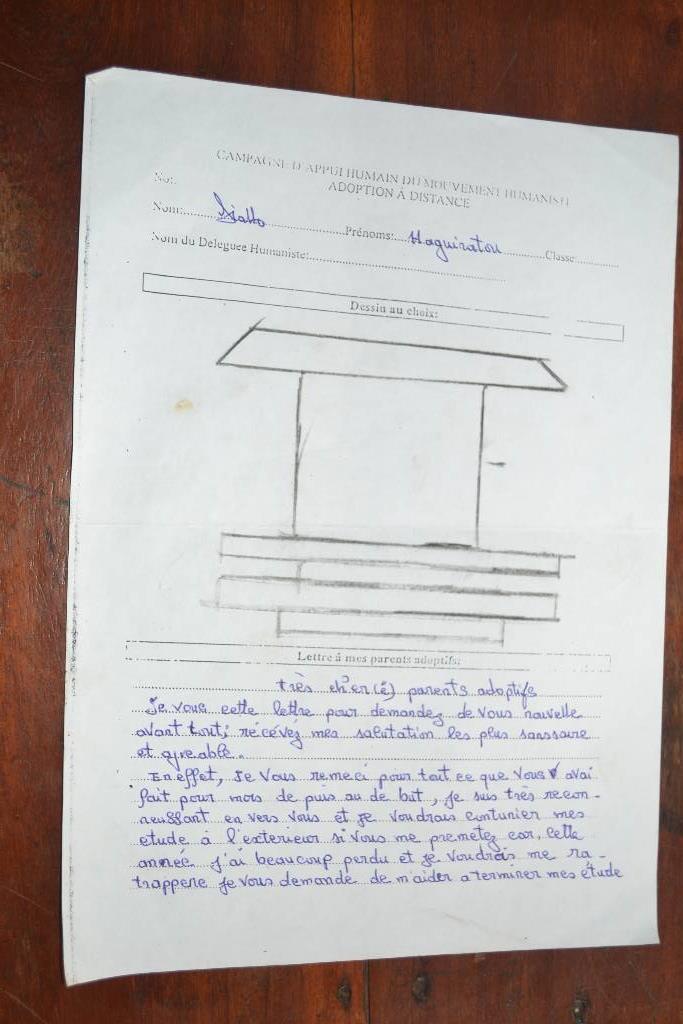 CAMPAGNE D'APPUI HUMAIN DU MOUVEMENT HUMANISTE
ADOPTION À DISTANCE
No:
Nom: Diallo Prénoms: Haguiratou Classe
Nom du Deleguee Humaniste:
Dessin au choix:
Lettre à mes parents adoptifs:
très cher(é) parents adoptifs
Je vous cette lettre pour demandez de vous nouvelle
avant tout; récévéz mes salutation les plus sanssaire
et agreablé.
En effet, Je Vous remeci pour tout ce que Vous avai
fait pour mois de puis au de but, je suis très recon-
neussant en vers vous et je voudrais contunier mes
etude à l'exterieur si vous me premetez car, cette
année j'ai beaucoup perdu et je voudrais me ra-
trappere je vous demande de m'aider a terminer mes étude